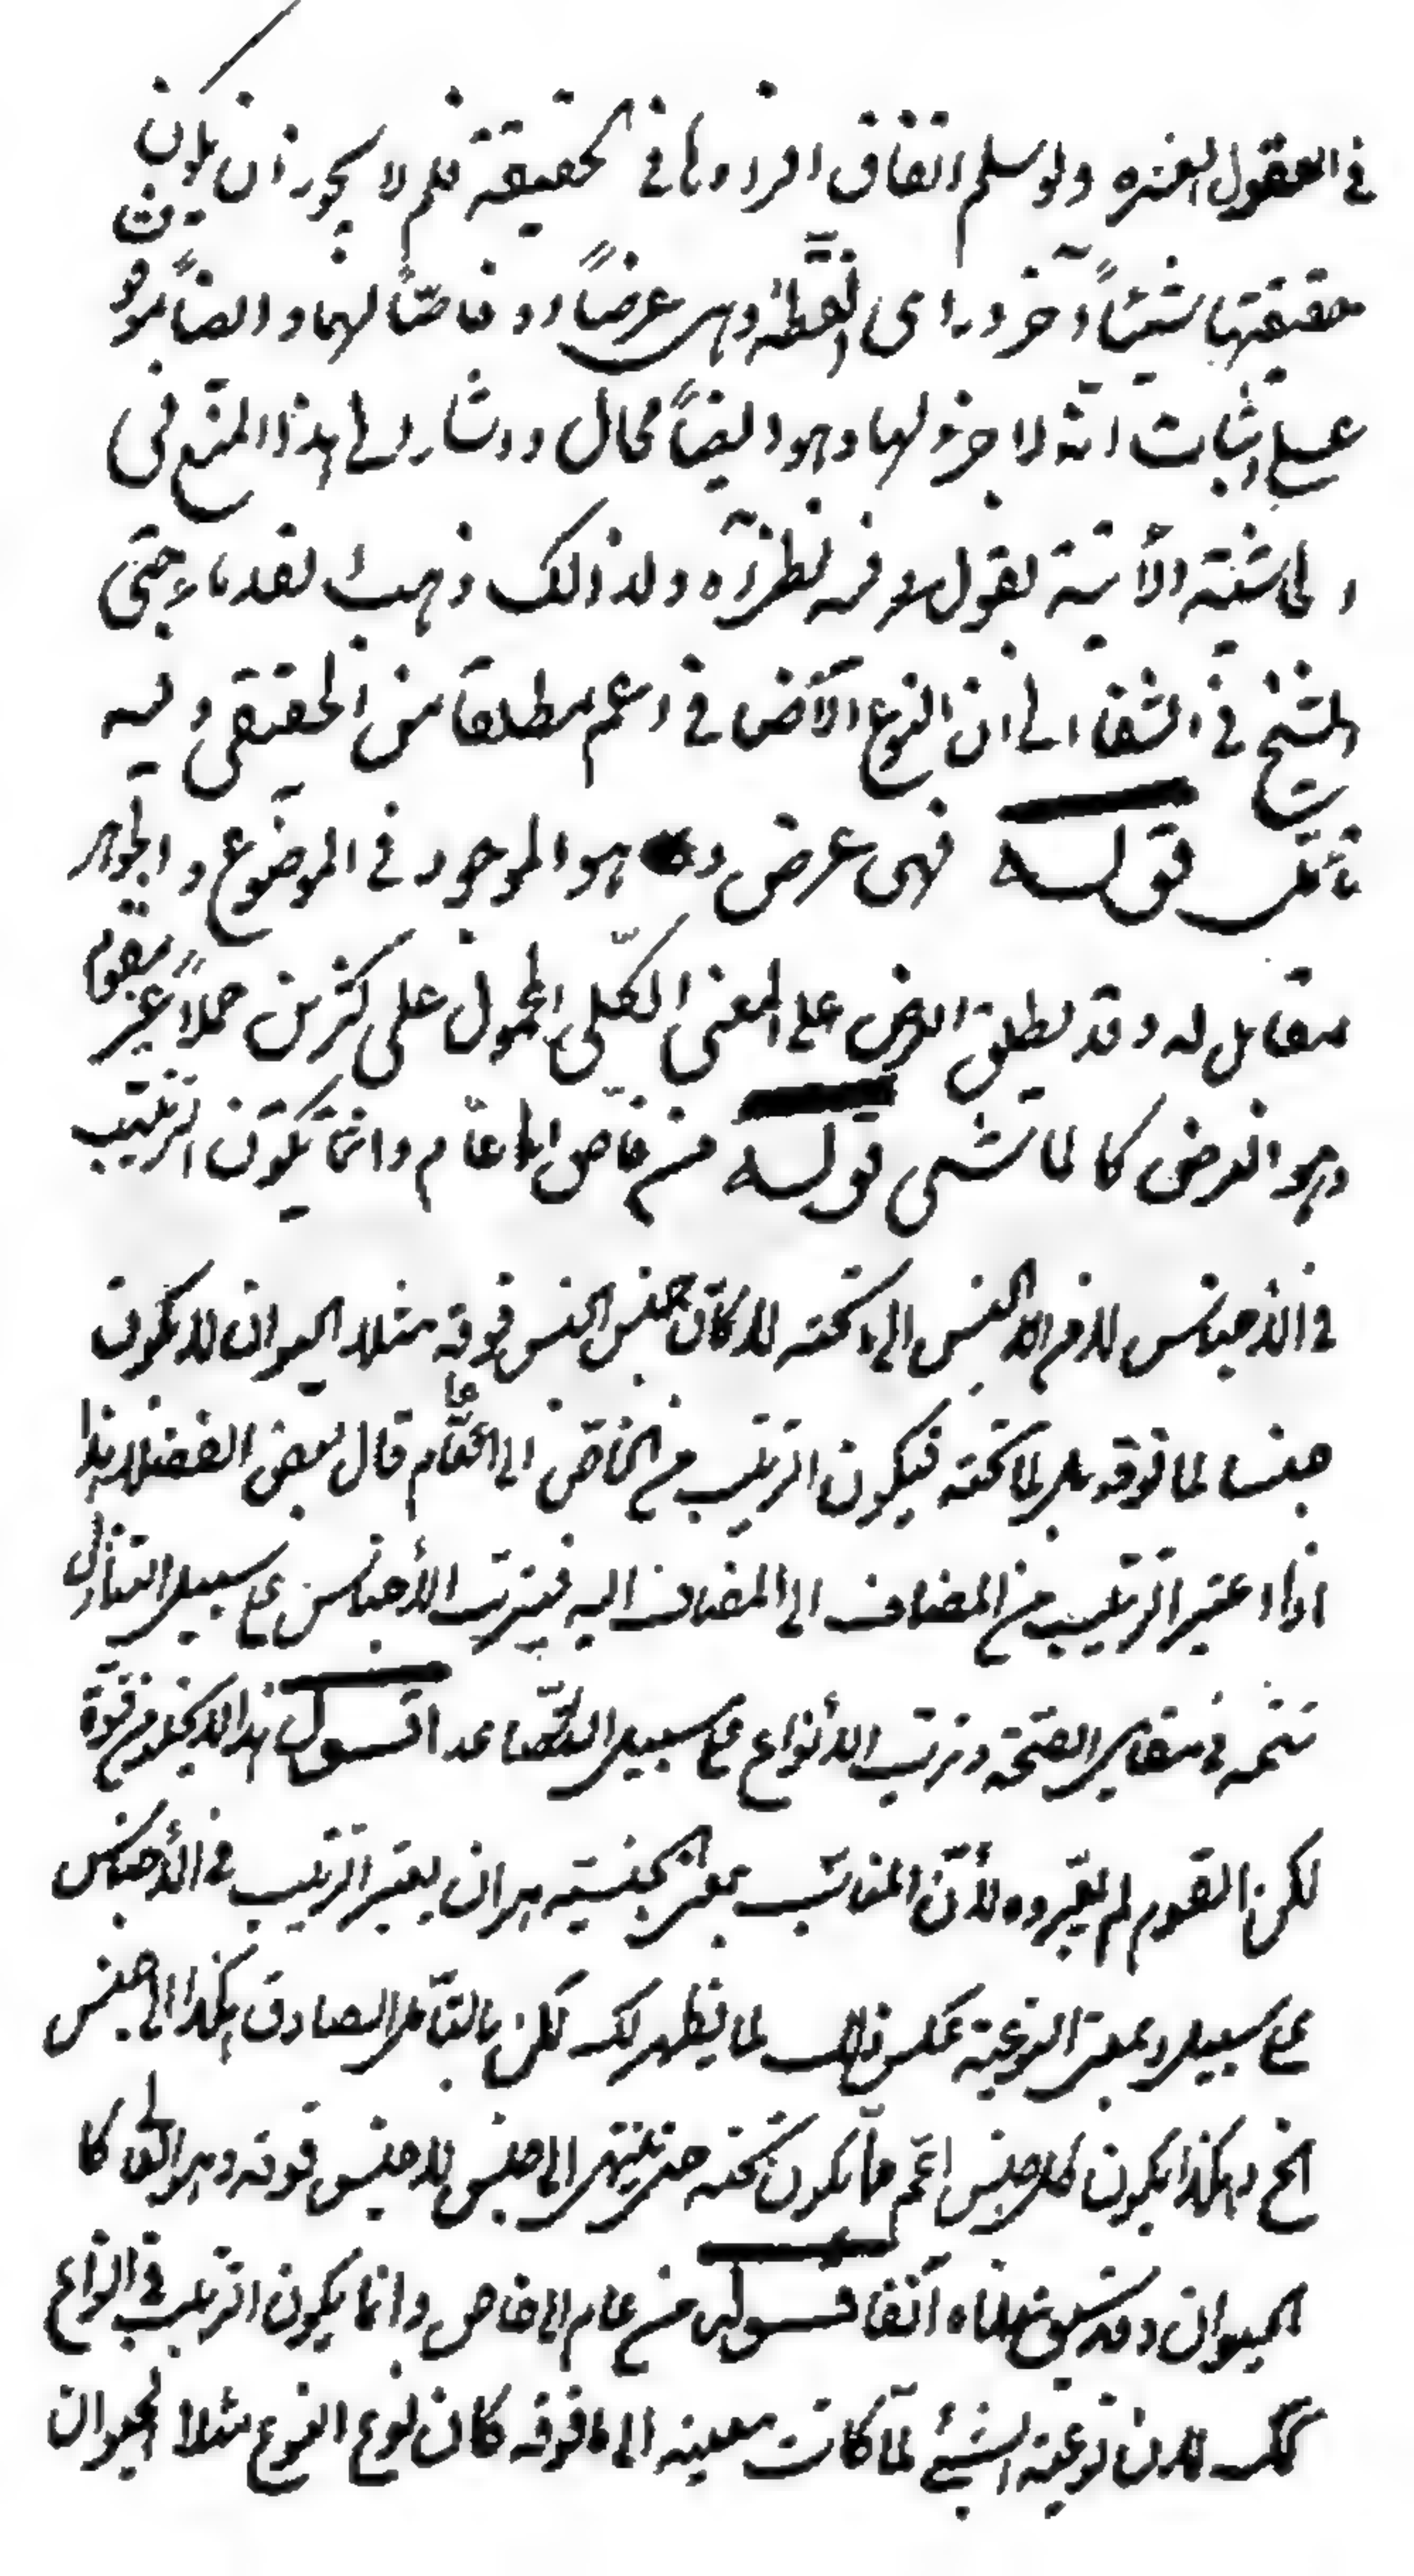 في العقول العشرة ولو سلم اتفاق افرادها في الحقيقة فلم لا يجوز ان يكون
حقيقتها شيئاً آخر وراى النقطة وهى عرضاً او خاصّاً لهما وايضاً موقوف
على اثبات انّه لا جزء لها وهو ايضاً محال واشار الى هذا المنع في
الحاشية الأتية بقوله وفيه نظر آه ولذالك ذهب القدماء حتى
الشيخ في الشفا الى ان النوع الأضافي اعم مطلقا من الحقيقي وفيه
تأمّل قوله فهى عرض وهو الموجود في الموضوع والجوهر
مقابل له وقد يطلق العرض على المعنى الكلّى المحمول على كثرين حملاً غير مقوم
وهو العرضى كالماشى قوله من خاصّ الى عامّ وانّما يكون الترتيب
في الاجناس لان الجنس الى تحته لا كان جنس الجنس فوقه مثلا الحيوان لا يكون
جنسا لما فوقه بل لما تحته فيكون الترتيب من الخاصّ الى العامّ قال بعض الفضلاء هذا
اذا اعتبر الترتيب من المضاف الى المضاف اليه فيترتب الأجناس على سبيل التنازل
في مقابل وترتب الأنواع على سبيل التصاعد اقول هذا لا يخلو من قوّة
لكن القوم لم يعتبروه لأنّ المناسب بمعنى الجنسية هو ان يعتبر الترتيب في الأجناس
على سبيل وبمعنى النوعية عكس ذالك لما يظهر لك لكن بالتأمل الصادق هكذا الى جنس
الخ وهكذا يكون كل جنس اعمّ ممّا يكون تحته حتى ينتهى الى جنس لا جنس فوقه وهو العالى كا
الحيوان وقد سبق منّا آنفا قوله من عام الى خاص وانما يكون الترتيب في انواع
كك لان نوعية الشيئ لمّا كانت معينه الى ما فوقه كان نوع النوع مثلا الحيوان